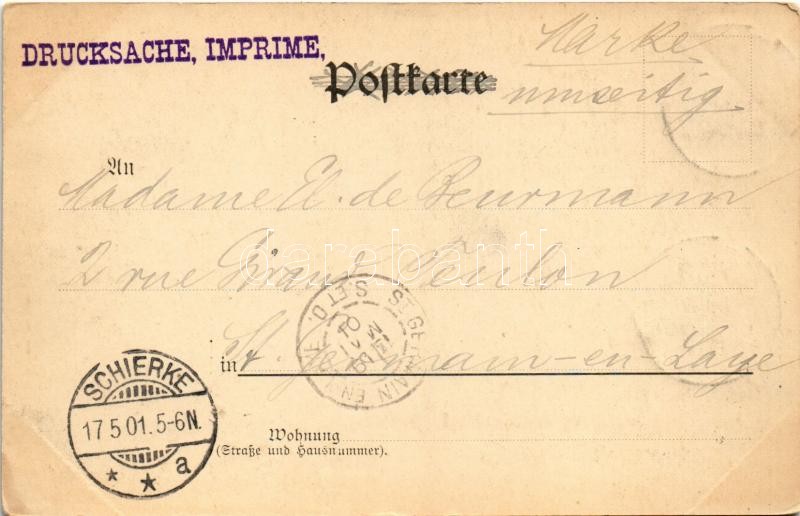 DRUCKSACHE, IMPRIME,
Marke
Postkarte
umseitig.
An
Madame El. de Beurmann
2 rue Grand
darabanth
in St. Germain-en-Laye
ST GERMAIN EN
S. ET O.
01
SCHIERKE
17 5 01. 5-6 N.
* * a
Wohnung
(Straße und Hausnummer).